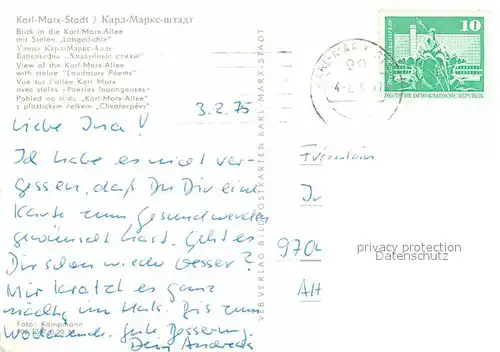 Karl-Marx-Stadt / Карл-Маркс-штадт
Blick in die Karl-Marx-Allee
mit Stelen "Lobgedichte"
Улица Карл-Маркс-Алле
Барельефы „Хвалебные стихи"
View of the Karl-Marx-Allee
with stelae "Laudatory Poems"
Vue sur l'allée Karl Marx
avec stèles «Poésies louangeuses»
Pohled na třídu „Karl-Marx-Allee"
s plastickým celkem „Chvalozpěvy"
3.2.75
Liebe Ina!
Ich habe es nicht ver-
gessen, daß Du Dir eine
Karte zum Gesundwerden
gewünscht hast. Geht es
Dir schon wieder besser?
Mir kratzt es ganz
mächtig im Hals. Bis zum
Wochenende. Gute Besserung.
Dein Andreas
Foto: Kampmann
VEB VERLAG BILD POSTKARTEN KARL-MARX-STADT
10
DEUTSCHE DEMOKRATISCHE REPUBLIK
Fräulein
In
970
Alt
privacy protection
Datenschutz